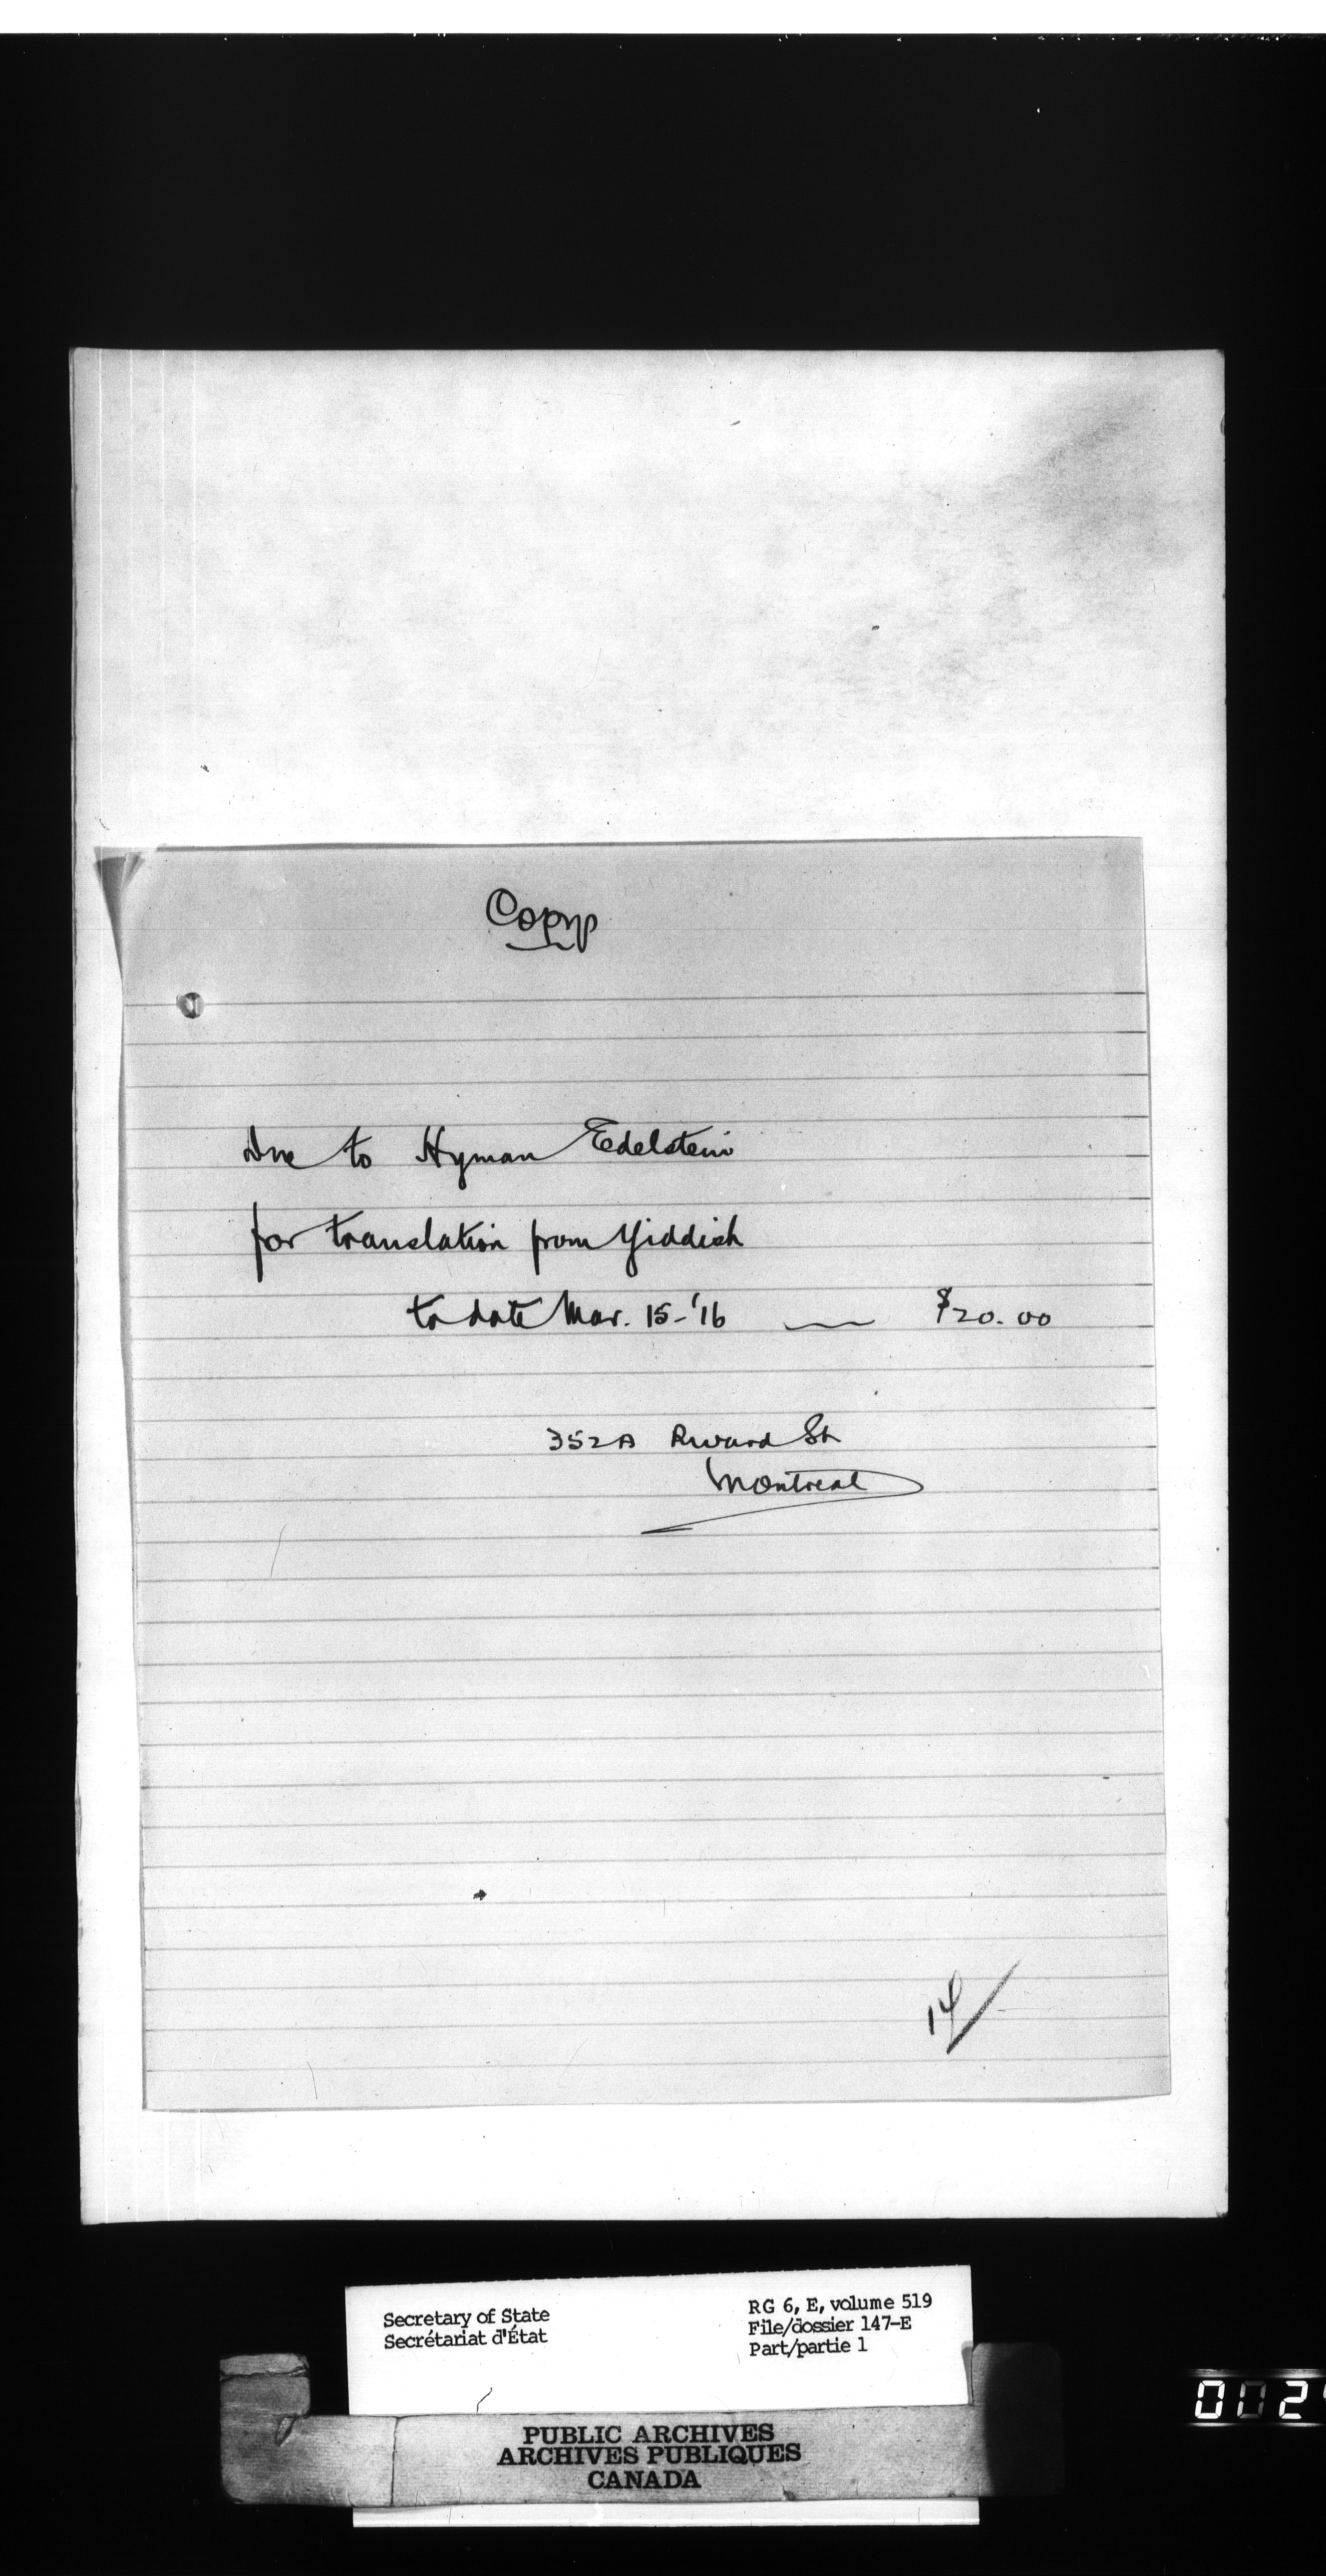 Copy
Due to Hyman Edelstein
for translation from Yiddish
to date Mar. 15-'16 — $20.00
352A Rivard St
Montreal
14
Secretary of State
Secrétariat d'État
RG 6, E, volume 519
File/dossier 147-E
Part/partie 1
PUBLIC ARCHIVES
ARCHIVES PUBLIQUES
CANADA
002